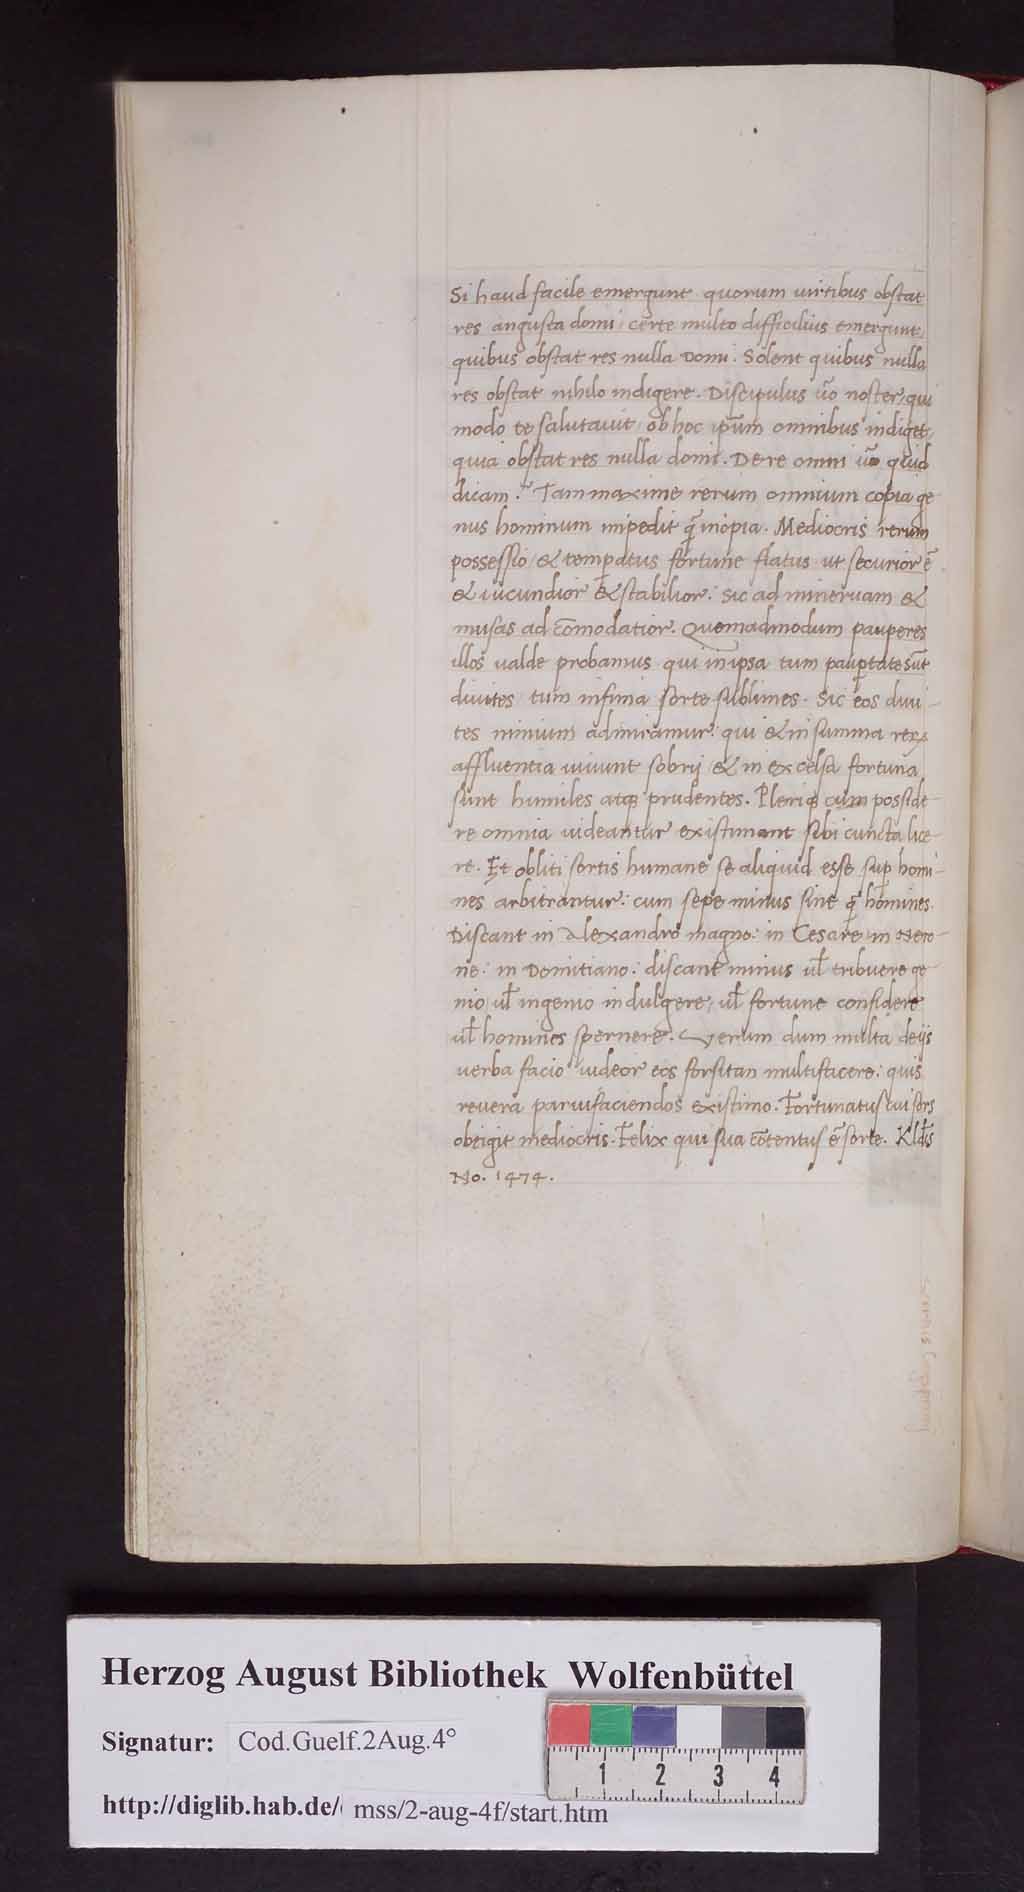 Si haud facile emergunt quorum uirtibus obstat
res angusta domi, certe multo difficilius emergunt,
quibus obstat res nulla Domi. Solent quibus nulla
res obstat nihilo indigere. Discipulus ūo noster, qui
modo te salutauit, ob hoc ip̄um omnibus indiget,
quia obstat res nulla domi. De re omni ūo quid
dicam? Tam maxime rerum omnium copia ge
nus hominum impedit q̄ inopia. Mediocris rerum
possessio, & temꝑatus fortune flatus ut securior ē
& iucundior & stabilior: Sic ad mineruam &
musas ad cōmodatior. Quemadmodum pauperes
illos ualde probamus qui in ipsa tum pauꝑtate sūt
diuites, tum infima sorte sublimes. Sic eos diui-
tes nimium admiramur: qui & in summa reꝝ
affluentia uiuunt sobrij & in excelsa fortuna
sunt humiles atqꝫ prudentes. Pleriqꝫ cum posside-
re omnia uideantur existimant sibi cuncta lice-
re. Et obliti sortis humane se aliquid esse suꝑ homi-
nes arbitrantur: cum sepe minus sint q̄ homines.
Discant in Alexandro magno: in Cesare in Nero-
ne: in Domitiano: discant minus ul̄ tribuere ge
nio, ul̄ ingenio indulgere, ul̄ fortune confidere
ul̄ homines spernere. Verum dum multa de ijs
uerba facio uideor eos forsitan multifacere: quis
reuera paruifaciendos existimo. Fortunatus cui sors
obtigit mediocris. Felix qui sua cōtentus ē sorte. Kl̄dis
No. 1474.
Herzog August Bibliothek Wolfenbüttel
Signatur: Cod.Guelf.2Aug.4°
1 2 3 4
http://diglib.hab.de/ mss/2-aug-4f/start.htm